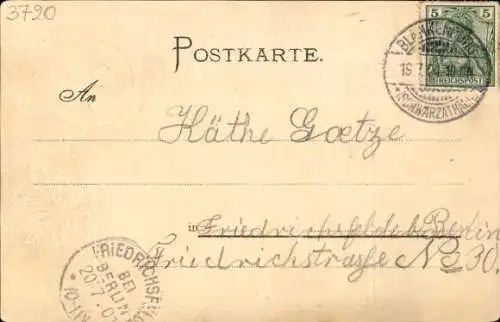 3720
5
REICHSPOST
BLANKENBURG
19.7.
SCHWARZATHAL
POSTKARTE.
An
Käthe Goetze
in Friedrichsfelde b. Berlin
Friedrichstraße No 30.
FRIEDRICHSFELDE
BEI
BERLIN
20.7.0